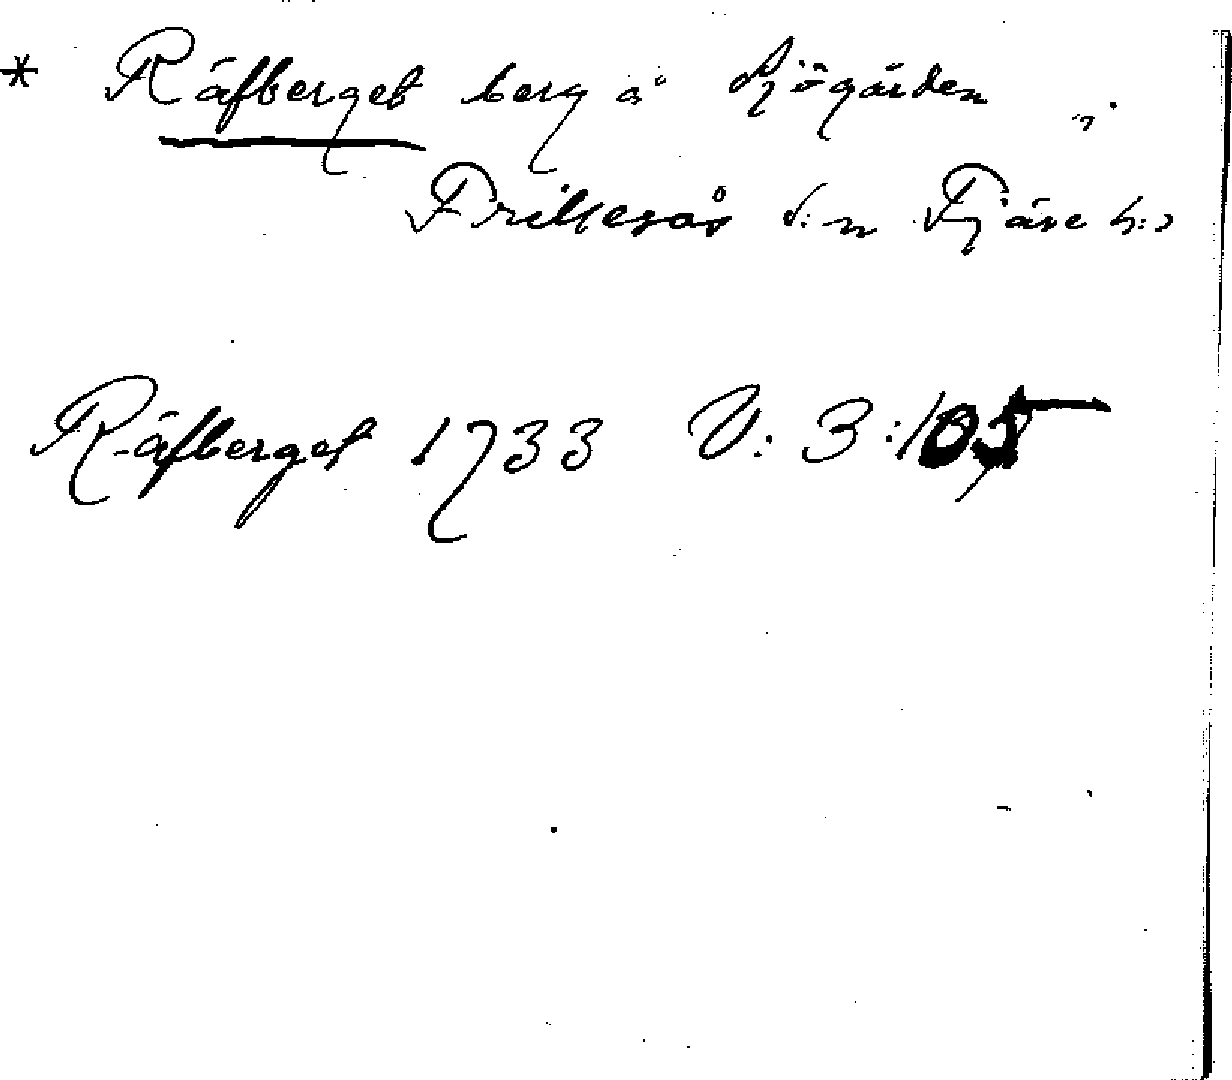 * Räfberget berg å Sjögården i
Frillesås s:n Fjäre h:d
Räfberget 1733 V: 3:105